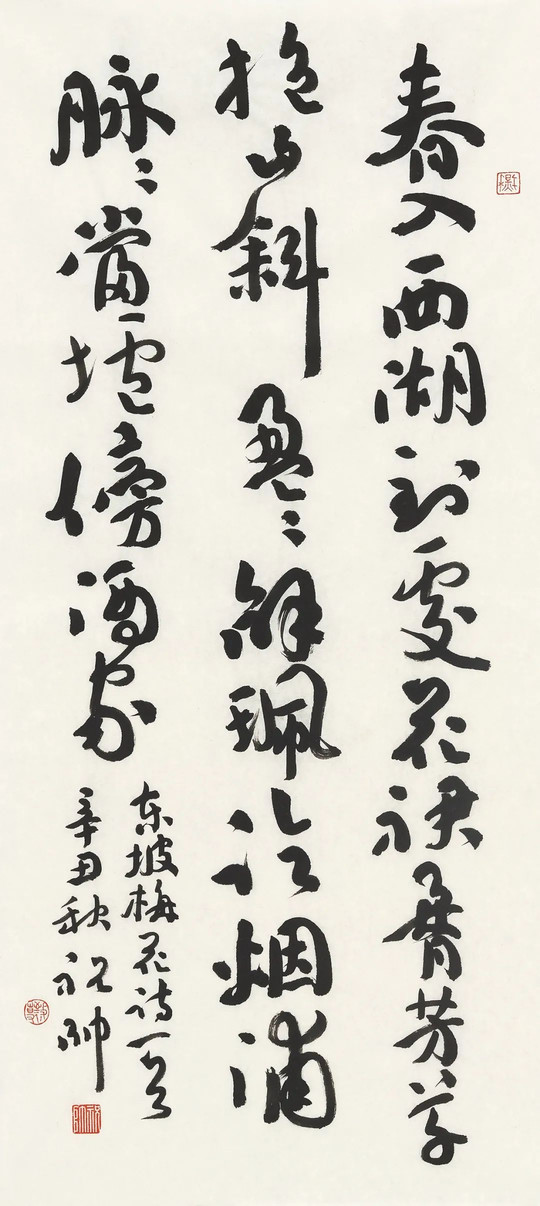 春入西湖到處花裙腰芳草
抱山斜盈〻解珮临烟浦
脉〻當壚傍酒家
东坡梅花诗一首
辛丑秋祝帅